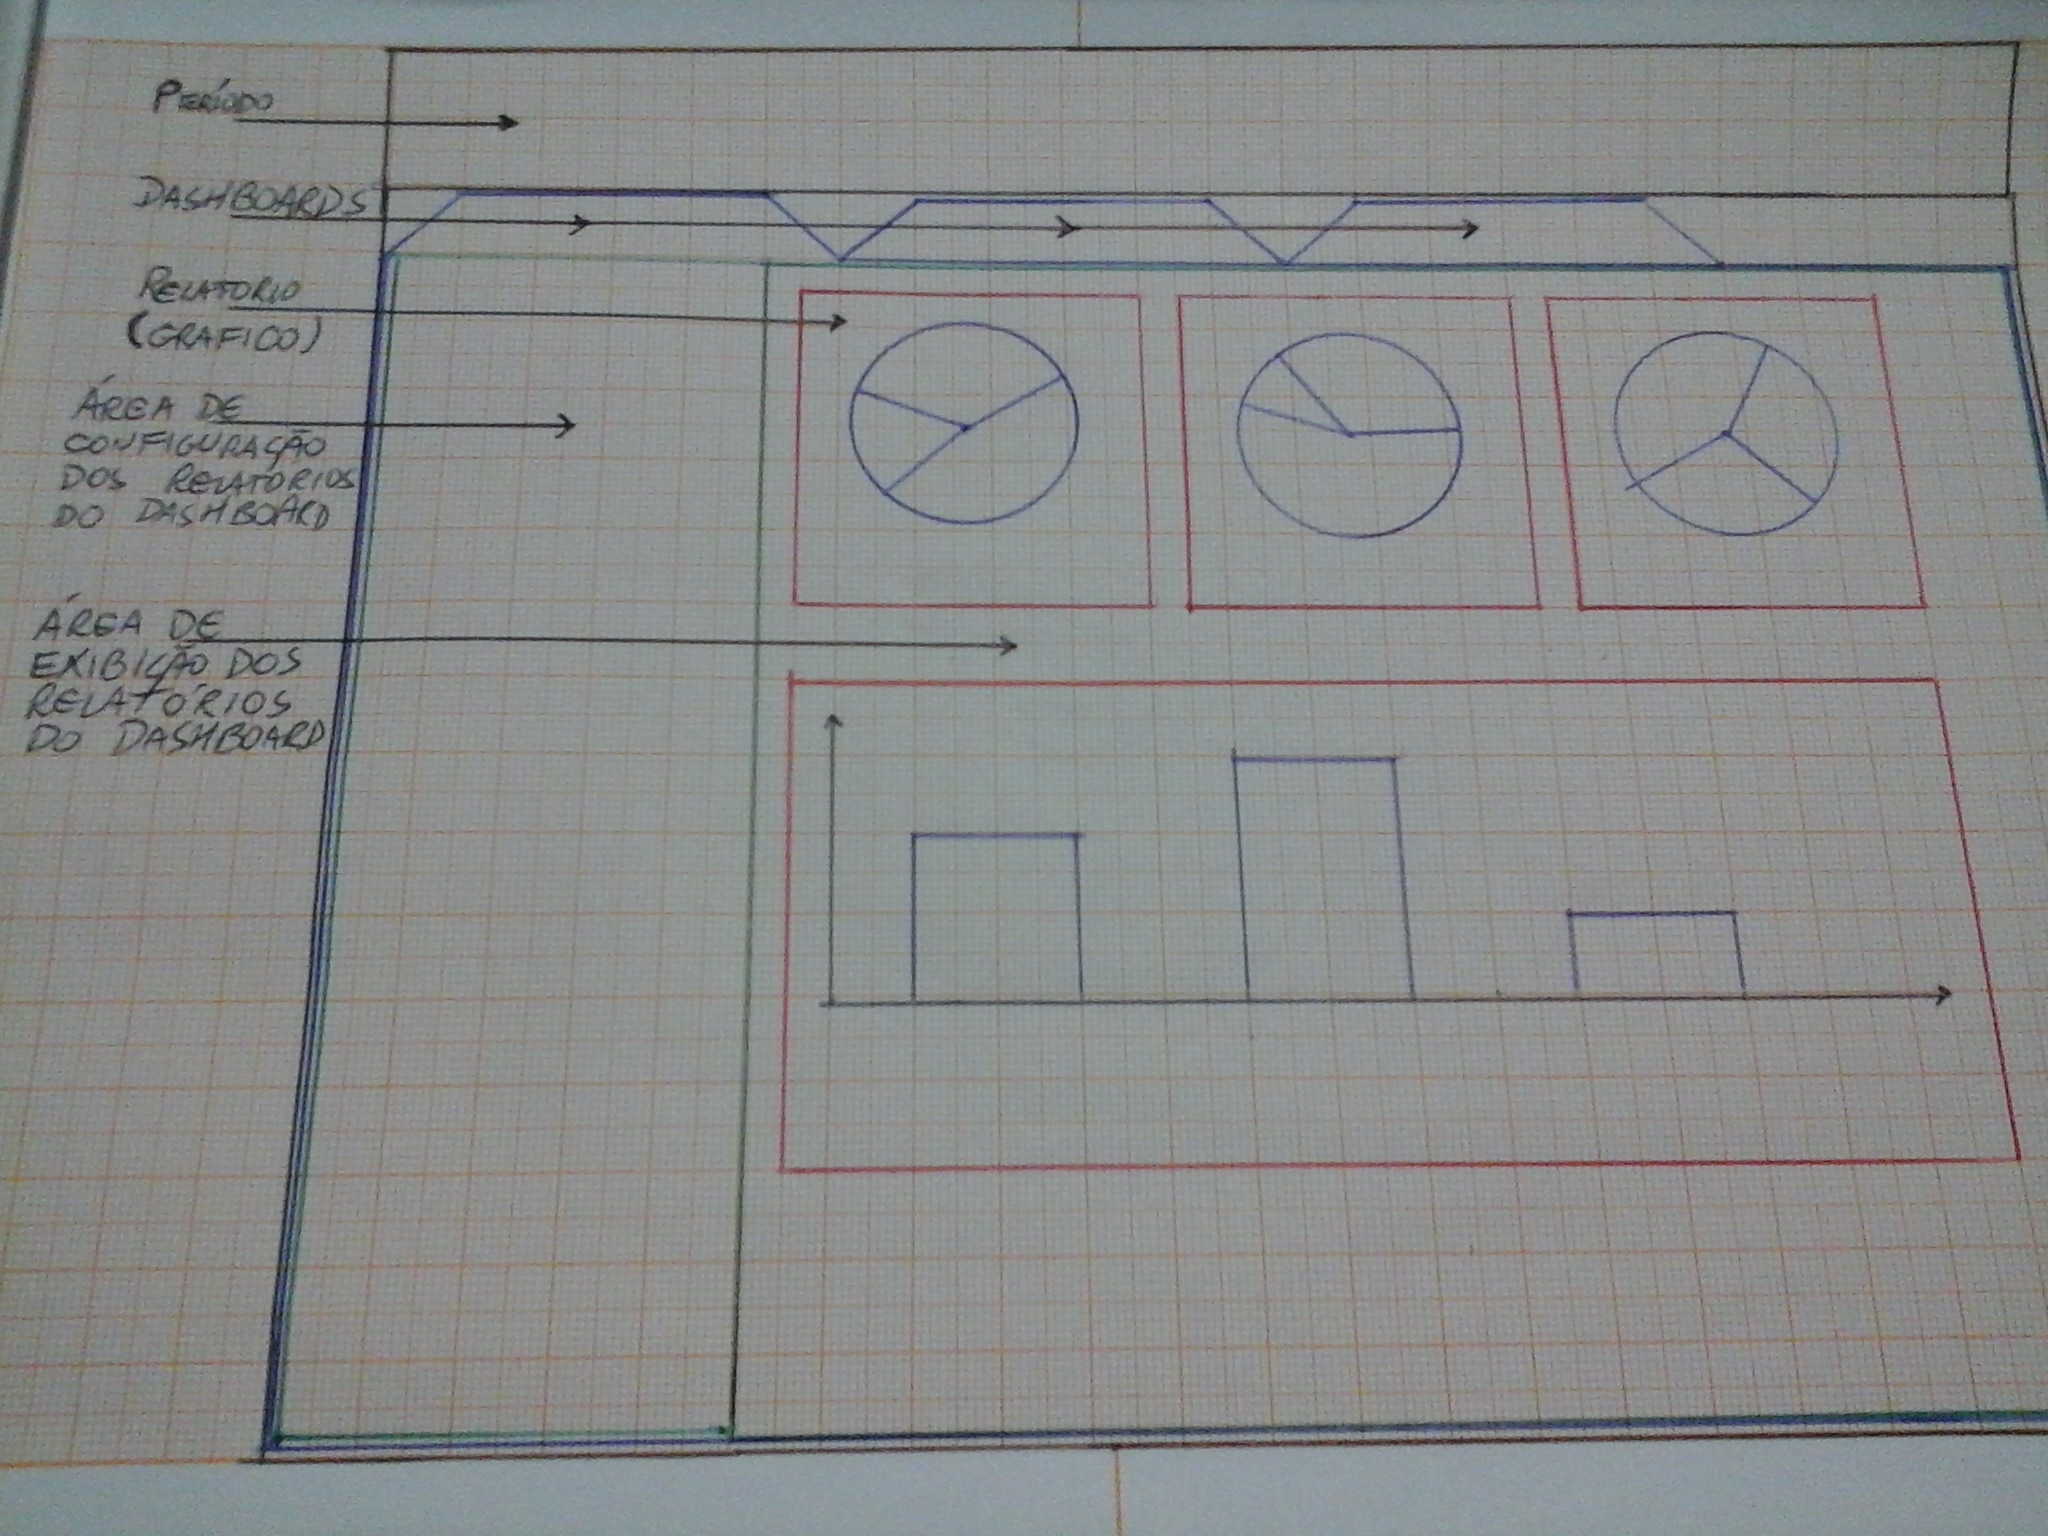 PERÍODO
DASHBOARDS
RELATORIO
(GRAFICO)
ÁREA DE
CONFIGURAÇÃO
DOS RELATÓRIOS
DO DASHBOARD
ÁREA DE
EXIBIÇÃO DOS
RELATÓRIOS
DO DASHBOARD